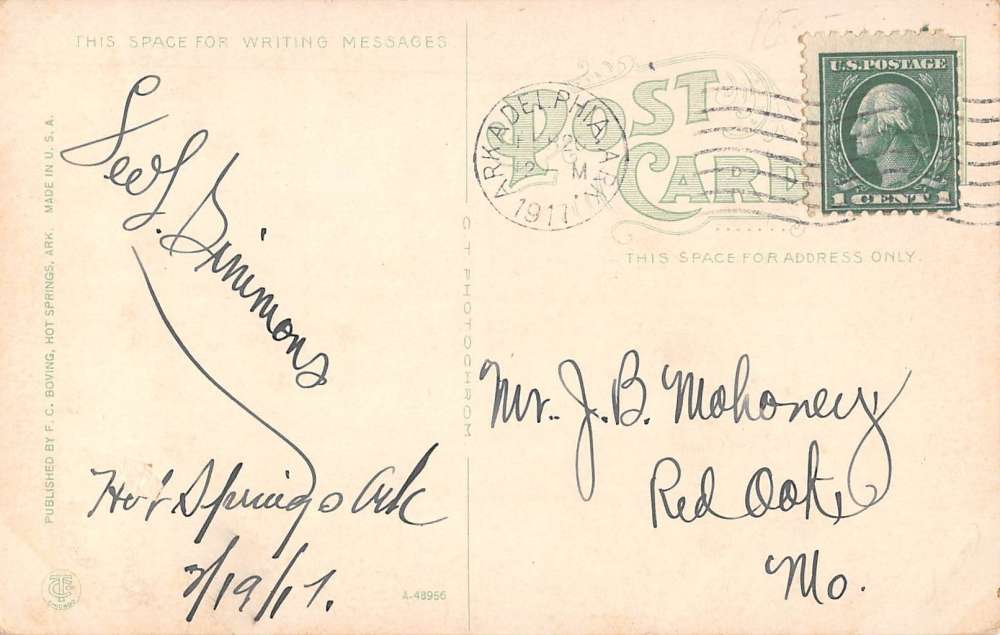 THIS SPACE FOR WRITING MESSAGES
POST CARD
ARKADELPHIA, ARK.
M
1917
U.S. POSTAGE
1 CENT 1
THIS SPACE FOR ADDRESS ONLY.
PUBLISHED BY F. C. BOVING, HOT SPRINGS, ARK. MADE IN U. S. A.
C T PHOTOCHROM
Simmons
Hot Springs Ark
/19/17.
Mr. J. B. Mahoney
Red Oak,
Mo.
A-48956